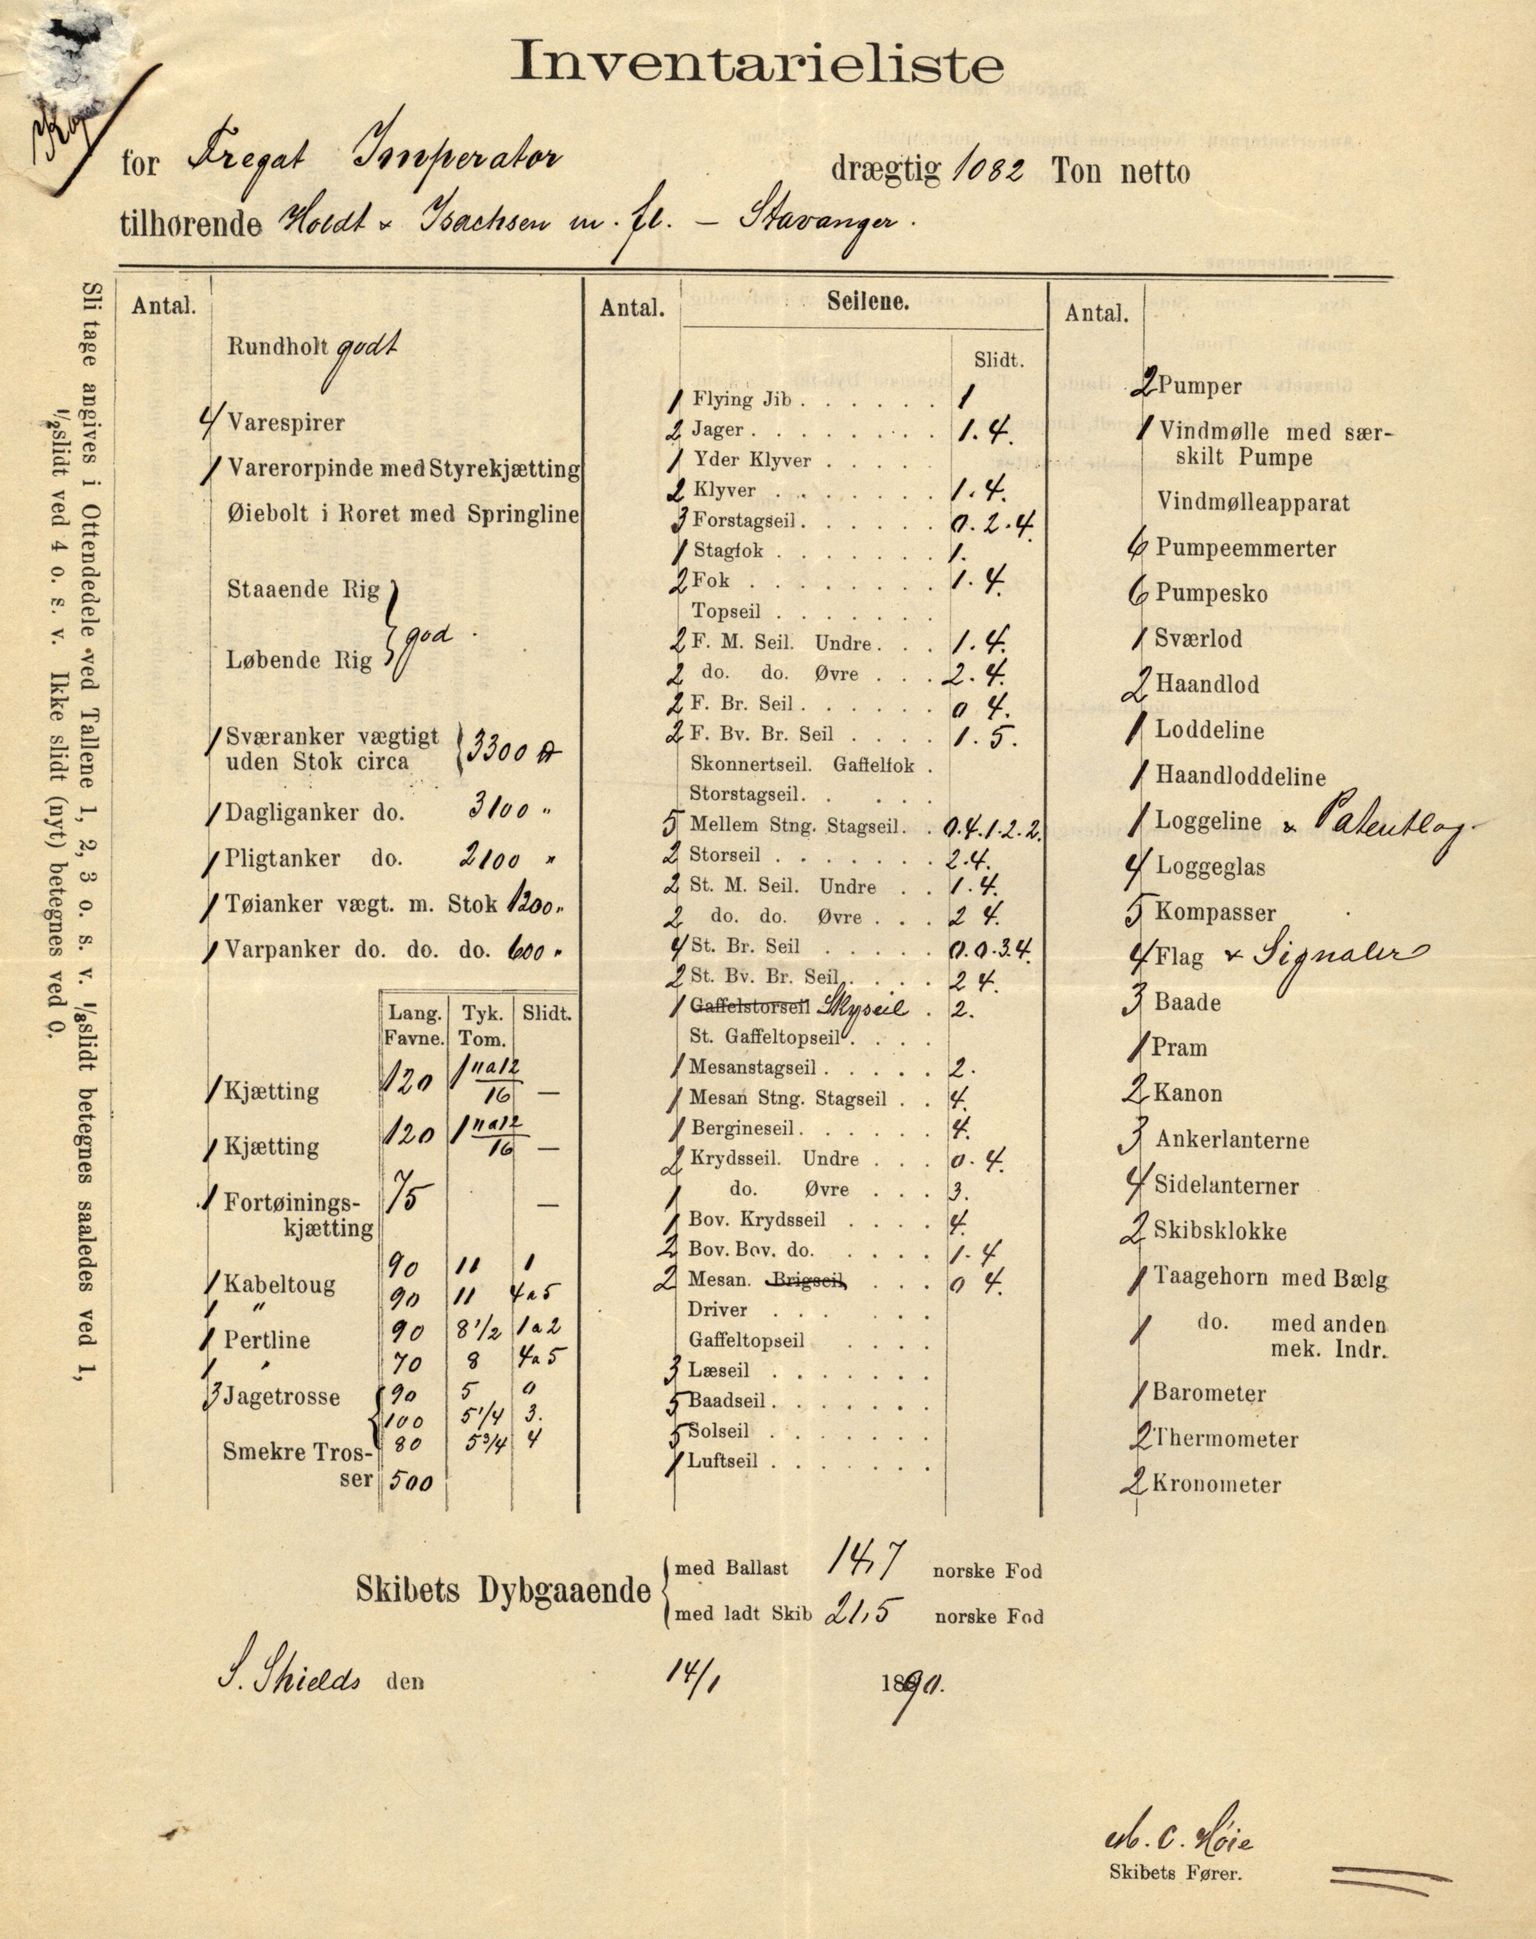 Inventarieliste
for Fregat Imperator drægtig 1082 Ton netto
tilhørende Holdt & Isachsen m. fl. – Stavanger.
Sli tage angives i Ottendedele ved Tallene 1, 2, 3 o. s. v. 1/8 slidt betegnes saaledes ved 1,
1/2 slidt ved 4 o. s. v. Ikke slidt (nyt) betegnes ved 0.
Antal.
Rundholt godt
4 Varespirer
1 Varerorpinde med Styrekjætting
Øiebolt i Roret med Springline
Staaende Rig
god.
Løbende Rig
1 Sværanker vægtigt
uden Stok circa 3300 ℔
1 Dagliganker do. 3100 "
1 Pligtanker do. 2100 "
1 Tøianker vægt. m. Stok 1200 "
1 Varpanker do. do. do. 600 "
Lang. Tyk. Slidt.
Favne. Tom.
1 Kjætting 120 1 11 a 12/16 —
1 Kjætting 120 1 11 a 12/16 —
1 Fortøinings- 75 —
kjætting
1 Kabeltoug 90 11 1
1 " 90 11 4 a 5
1 Pertline 90 8 1/2 1 a 2
1 " 70 8 4 a 5
3 Jagetrosse 90 5 0
100 5 1/4 3.
80 5 3/4 4
Smekre Tros-
ser 500
Antal. Seilene.
Slidt.
1 Flying Jib . . . . . . 1
2 Jager . . . . . . . . 1. 4.
1 Yder Klyver . . . . .
2 Klyver . . . . . . . 1. 4.
3 Forstagseil . . . . . . 0. 2. 4.
1 Stagfok . . . . . . . 1.
2 Fok . . . . . . . . 1. 4.
Topseil . . . . . . .
2 F. M. Seil. Undre . . . 1. 4.
2 do. do. Øvre . . . 2. 4.
2 F. Br. Seil . . . . . . 0 4.
2 F. Bv. Br. Seil . . . . 1. 5.
Skonnertseil. Gaffelfok .
Storstagseil . . . . .
5 Mellem Stng. Stagseil . . 0. 4. 1. 2. 2.
2 Storseil . . . . . . . 2. 4.
2 St. M. Seil. Undre . . 1. 4.
2 do. do. Øvre . . . 2 4.
4 St. Br. Seil . . . . . 0. 0. 3. 4.
2 St. Bv. Br. Seil . . . . 2 4.
1 Gaffelstorseil Skyseil . 2.
St. Gaffeltopseil . . . .
1 Mesanstagseil . . . . . 2.
1 Mesan Stng. Stagseil . . 4.
1 Bergineseil . . . . . . 4.
2 Krydsseil. Undre . . . 0. 4.
1 do. Øvre . . . 3.
1 Bov. Krydsseil . . . . 4.
2 Bov. Bov. do. . . . . 1. 4
2 Mesan. Brigseil . . . 0 4.
Driver . . . . . . .
Gaffeltopseil . . . .
3 Læseil . . . . . . .
5 Baadseil . . . . . . .
5 Solseil . . . . . . .
1 Luftseil . . . . . . .
Antal.
2 Pumper
1 Vindmølle med sær-
skilt Pumpe
Vindmølleapparat
6 Pumpeemmerter
6 Pumpesko
1 Sværlod
2 Haandlod
1 Loddeline
1 Haandloddeline
1 Loggeline & Patentlog.
4 Loggeglas
5 Kompasser
4 Flag & Signaler
3 Baade
1 Pram
2 Kanon
3 Ankerlanterne
4 Sidelanterner
2 Skibsklokke
1 Taagehorn med Bælg
1 do. med anden
mek. Indr.
1 Barometer
2 Thermometer
2 Kronometer
Skibets Dybgaaende
med Ballast 14,7 norske Fod
med ladt Skib 21,5 norske Fod
S. Shields den 14/1 1890.
M. C. Høie
Skibets Fører.